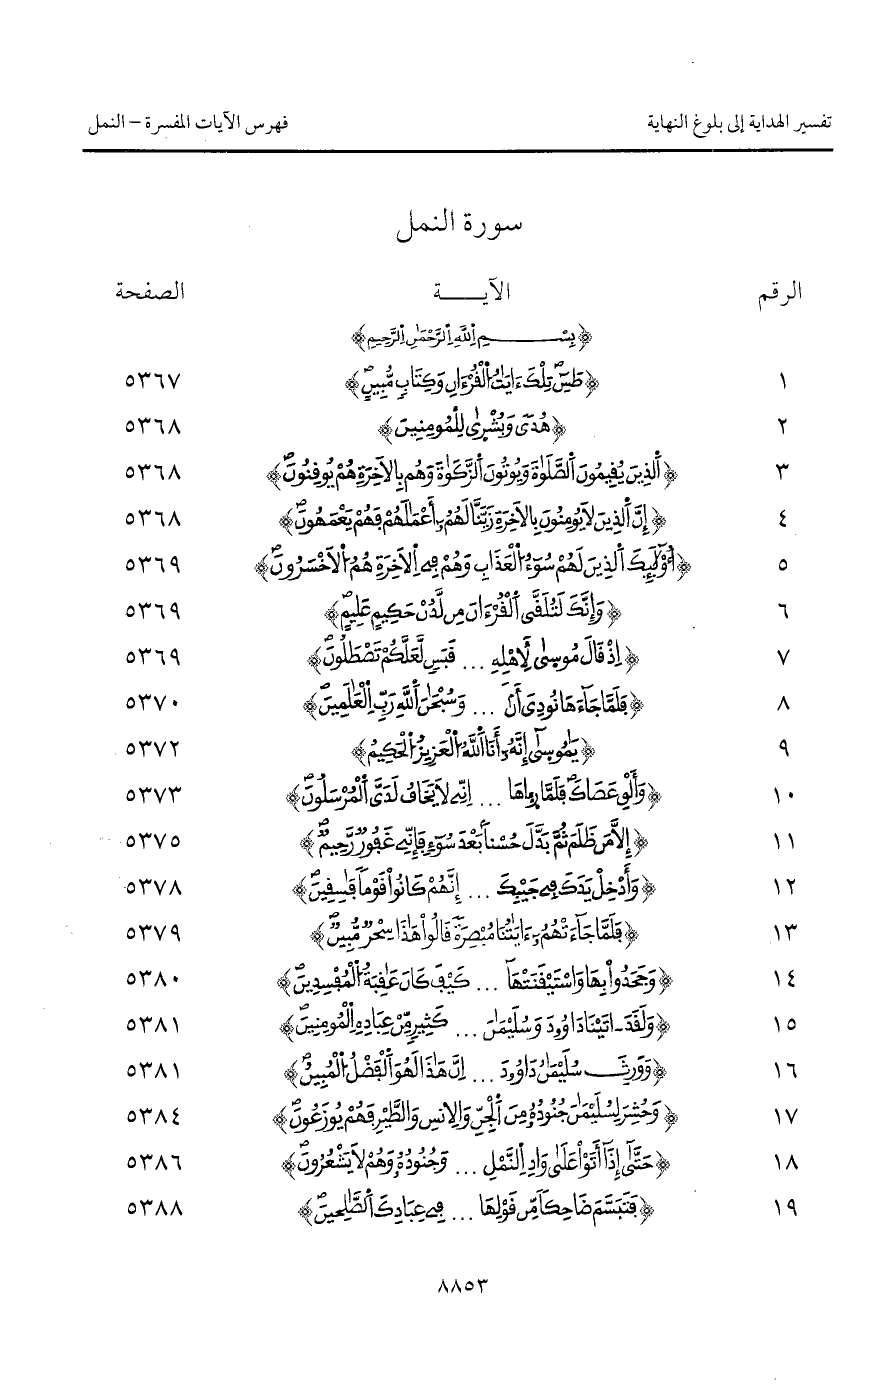 تفسير الهداية إلى بلوغ النهاية فهرس الآيات المفسرة – النمل
سورة النمل
الرقم الآيـــة الصفحة
﴿بِسْمِ اِللَّهِ اِلرَّحْمَٰنِ اِلرَّحِيمِ﴾
١ ﴿طَسِٓ تِلْكَ ءَايَٰتُ اُلْقُرْءَانِ وَكِتَابٍ مُّبِينٍ﴾ ٥٣٦٧
٢ ﴿هُدىً وَبُشْرٰى لِلْمُومِنِينَ﴾ ٥٣٦٨
٣ ﴿اَلذِينَ يُقِيمُونَ اَلصَّلَوٰةَ وَيُوتُونَ اَلزَّكَوٰةَ وَهُم بِالاَخِرَةِ هُمْ يُوقِنُونَ﴾ ٥٣٦٨
٤ ﴿إِنَّ اَلذِينَ لَا يُومِنُونَ بِالاَخِرَةِ زَيَّنَّا لَهُمُۥٓ أَعْمَٰلَهُمْ فَهُمْ يَعْمَهُونَ﴾ ٥٣٦٨
٥ ﴿أُوْلَٰٓئِكَ اَلذِينَ لَهُمْ سُوٓءُ اُلْعَذَابِ وَهُمْ فِے اِلاَخِرَةِ هُمُ اُلاَخْسَرُونَ﴾ ٥٣٦٩
٦ ﴿وَإِنَّكَ لَتُلَقَّى اَلْقُرْءَانَ مِن لَّدُنْ حَكِيمٍ عَلِيمٍ﴾ ٥٣٦٩
٧ ﴿إِذْ قَالَ مُوسِىٰ لِأَهْلِهِ ... قَبَسٍ لَّعَلَّكُمْ تَصْطَلُونَ﴾ ٥٣٦٩
٨ ﴿فَلَمَّا جَآءَهَا نُودِىَ أَنۢ ... وَسُبْحَٰنَ اَللَّهِ رَبِّ اِلْعَٰلَمِينَ﴾ ٥٣٧٠
٩ ﴿يَٰمُوسِىٰٓ إِنَّهُۥٓ أَنَا اَللَّهُ اُلْعَزِيزُ اُلْحَكِيمُ﴾ ٥٣٧٢
١٠ ﴿وَأَلْقِ عَصَاكَ فَلَمَّا رِءٰاهَا ... اِنِّے لَا يَخَافُ لَدَىَّ اَلْمُرْسَلُونَ﴾ ٥٣٧٣
١١ ﴿إِلَّا مَن ظَلَمَ ثُمَّ بَدَّلَ حُسْناً بَعْدَ سُوٓءٍ فَإِنِّے غَفُورٌ رَّحِيمٌ﴾ ٥٣٧٥
١٢ ﴿وَأَدْخِلْ يَدَكَ فِے جَيْبِكَ ... إِنَّهُمْ كَانُواْ قَوْماً فَٰسِقِينَ﴾ ٥٣٧٨
١٣ ﴿فَلَمَّا جَآءَتْهُمُۥٓ ءَايَٰتُنَا مُبْصِرَةً قَالُواْ هَٰذَا سِحْرٌ مُّبِينٌ﴾ ٥٣٧٩
١٤ ﴿وَجَحَدُواْ بِهَا وَاسْتَيْقَنَتْهَآ ... كَيْفَ كَانَ عَٰقِبَةُ اُلْمُفْسِدِينَ﴾ ٥٣٨٠
١٥ ﴿وَلَقَدَ اٰتَيْنَا دَاوُۥدَ وَسُلَيْمَٰنَ ... كَثِيرٍ مِّنْ عِبَادِهِ اِلْمُومِنِينَ﴾ ٥٣٨١
١٦ ﴿وَوَرِثَ سُلَيْمَٰنُ دَاوُۥدَ ... اِنَّ هَٰذَا لَهُوَ اَلْفَضْلُ اُلْمُبِينُ﴾ ٥٣٨١
١٧ ﴿وَحُشِرَ لِسُلَيْمَٰنَ جُنُودُهُۥ مِنَ اَلْجِنِّ وَالاِنسِ وَالطَّيْرِ فَهُمْ يُوزَعُونَ﴾ ٥٣٨٤
١٨ ﴿حَتَّىٰٓ إِذَآ أَتَوْاْ عَلَىٰ وَادِ اِلنَّمْلِ ... وَجُنُودُهُۥ وَهُمْ لَا يَشْعُرُونَ﴾ ٥٣٨٦
١٩ ﴿فَتَبَسَّمَ ضَاحِكاً مِّن قَوْلِهَا ... فِے عِبَادِكَ اَلصَّٰلِحِينَ﴾ ٥٣٨٨
٨٨٥٣